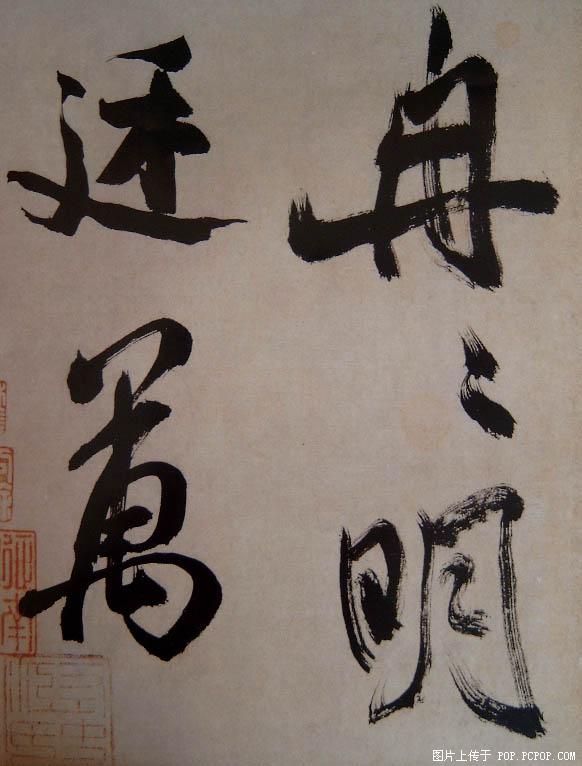 冉〻明
廷萬
图片上传于 POP.PCPOP.COM